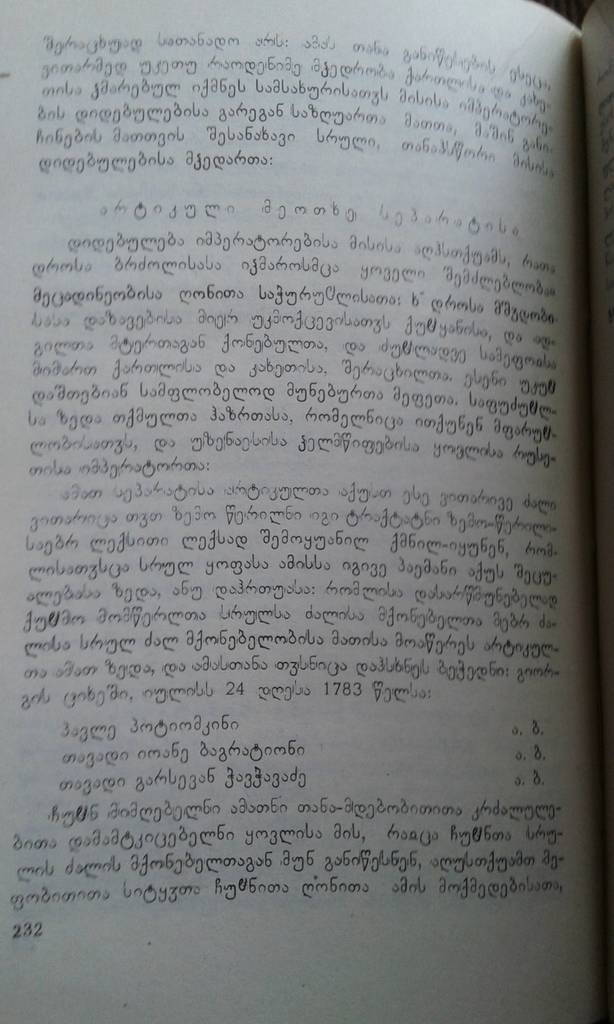 შერაცხუად სათანადო არს: ამას თანა განიწესების ესეცა,
ვითარმედ უკეთუ რაოდენიმე მჴედრობა ქართლისა და კახე-
თისა ჴმარებულ იქმნეს სამსახურისათჳს მისისა იმპერატორე-
ბის დიდებულებისა გარეგან საზღუართა მათთა, მაშინ განი-
ჩინების მათთვის შესანახავი სრული, თანაჰსწორი მისისა
დიდებულებისა მჴედართა:
არტიკული მეოთხე სეპარატისა
დიდებულება იმპერატორებისა მისისა აღჰსთქუამს, რათა
დროსა ბრძოლისასა იჴმაროსმცა ყოველი შემძლებლობაჲ
მეცადინეობისა ღონითა საჭურჱლისათა: ხ~ დროსა მშჳდობი-
სასა დაზავებისა მიერ უკმოქცევისათჳს ქჱყანისა, და ად-
გილთა მტერთაგან ქონებულთა, და ძჱლადვე სამეფოისა
მიმართ ქართლისა და კახეთისა, შერაცხილთა. ესენი უკჱ
დაშთებიან სამფლობელოდ მუნებურთა მეფეთა. საფუძჱლ-
სა ზედა თქმულთა ჰაზრთასა, რომელნიცა ითქუნენ მფარჱ-
ლობისათჳს, და უზენაესისა ჴელმწიფებისა ყოვლისა რუსე-
თისა იმპერატორთა:
ამათ სეპარატისა არტიკულთა აქუსთ ესე ვითარივე ძალი
ვითარიცა თჳთ ზემო წერილნი იგი ტრაქტატნი ზემო-წერილი-
საებრ ლექსითი ლექსად შემოყუანილ ქმნილ-იყუნენ, რომ-
ლისათჳსცა სრულ ყოფასა ამისსა იგივე პაემანი აქუს შეცუ-
ალებასა ზედა, ანუ დაჰრთუასა: რომლისა დასარწმუნებელად
ქჱმო მომწერლთა სრულსა ძალისა მქონებელთა მებრ ძა-
ლისა სრულ ძალ მქონებელობისა მათისა მოაწერეს არტიკულ-
თა ამათ ზედა, და ამასთანა თჳსნიცა დაჰსხნეს ბეჭედნი: გიორ-
გის ციხეში, იულისს 24 დღესა 1783 წელსა:
პავლე პოტიომკინი ა. ბ.
თავადი იოანე ბაგრატიონი ა. ბ.
თავადი გარსევან ჭავჭავაძე ა. ბ.
ჩუჱნ მიმღებელნი ამათნი თანა-მდებობითითა კრძალულე-
ბითა დამამტკიცებელნი ყოვლისა მის, რაიცა ჩუჱნთა სრუ-
ლის ძალის მქონებელთაგან მუნ განიწესნენ, აღუსთქუამთ მე-
ფობითითა სიტყჳთა ჩუჱნითა ღონითა ამის მოქმედებისათა,
232